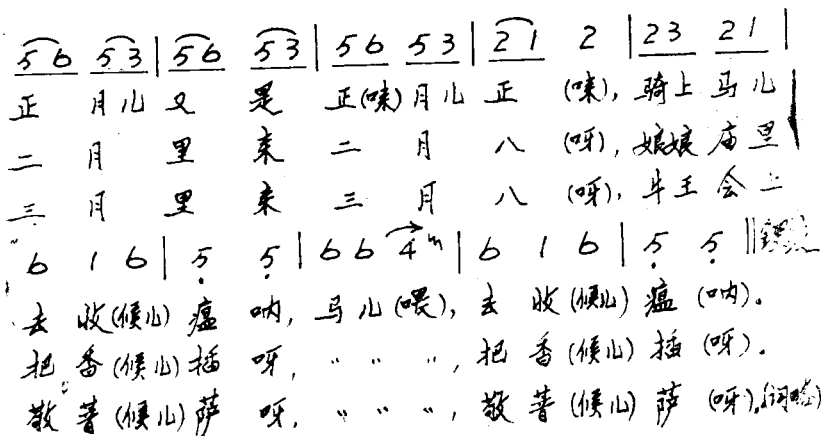 56 53 | 56 53 | 56 53 | 21 2 | 23 21 |
正 月儿 又 是 正(味)月儿 正 (味), 骑上 马儿
二 月 里 来 二 月 八 (呀), 娘娘 庙里
三 月 里 来 三 月 八 (呀), 牛王 会上
6 1 6 | 5 5 | 6 6 4 | 6 1 6 | 5 5 ‖
去 收(候儿) 瘟 呐, 马儿(喂), 去 收(候儿) 瘟 (呐).
把 香(候儿) 插 呀, " " ", 把 香(候儿) 插 (呀).
敬 菩(候儿) 萨 呀, " " ", 敬 菩(候儿) 萨 (呀).(词略)